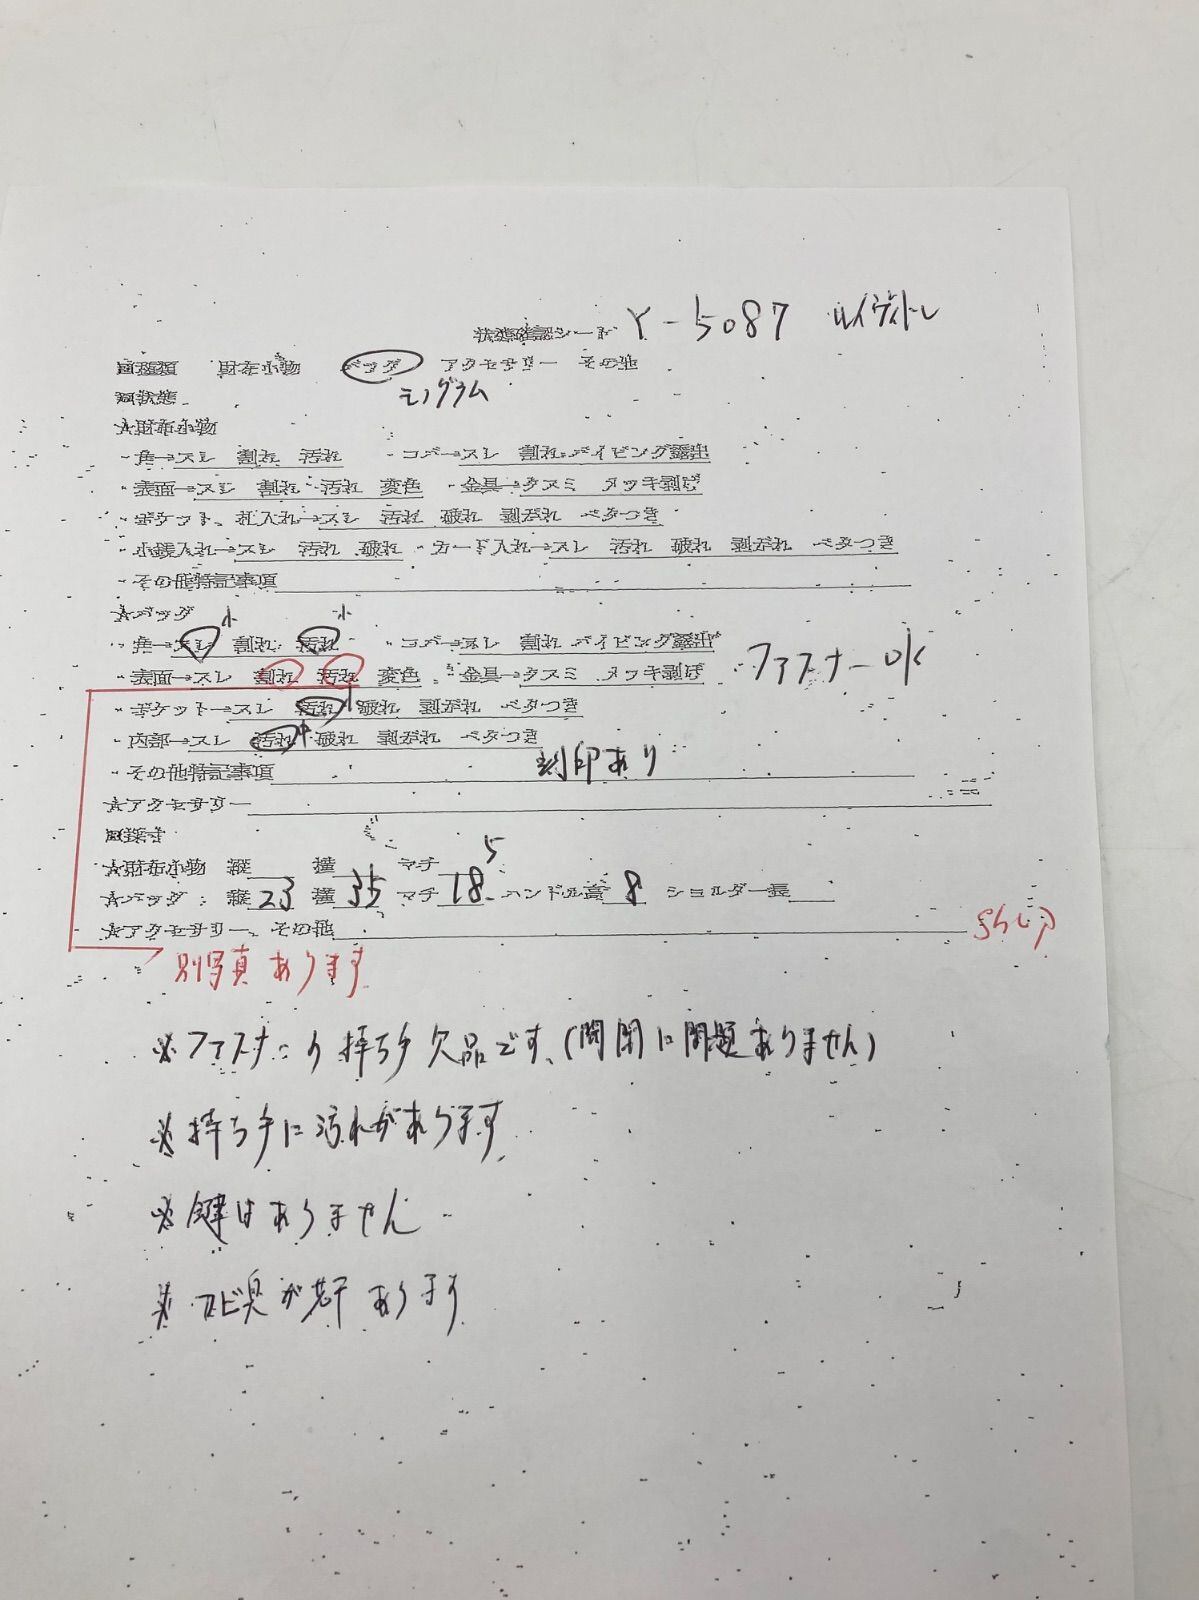 状態確認シート Y-5087 ルイヴィトン
■種類 財布小物 バッグ アクセサリー その他
モノグラム
■状態
★財布小物
・角→スレ 割れ 汚れ ・コバ→スレ 割れ パイピング露出
・表面→スレ 割れ 汚れ 変色 ・金具→クスミ メッキ剥げ
・ポケット、札入れ→スレ 汚れ 破れ 剥がれ ベタつき
・小銭入れ→スレ 汚れ 破れ ・カード入れ→スレ 汚れ 破れ 剥がれ ベタつき
・その他特記事項
★バッグ
小 小
・角→スレ 割れ 汚れ ・コバ→スレ 割れ パイピング露出
・表面→スレ 割れ 汚れ 変色 ・金具→クスミ メッキ剥げ ・ファスナーOK
・ポケット→スレ 汚れ 小 破れ 剥がれ ベタつき
・内部→スレ 汚れ 中 破れ 剥がれ ベタつき
・その他特記事項 刻印あり
★アクセサリー
■採寸
★財布小物 縦 横 マチ
★バッグ:縦 23 横 35 マチ 18.5 ハンドル高 8 ショルダー長
★アクセサリー、その他
別写真あります
※ファスナーの持ち手欠品です、(開閉に問題ありません)
※持ち手に汚れがあります
※鍵はありません
※カビ臭が若干あります